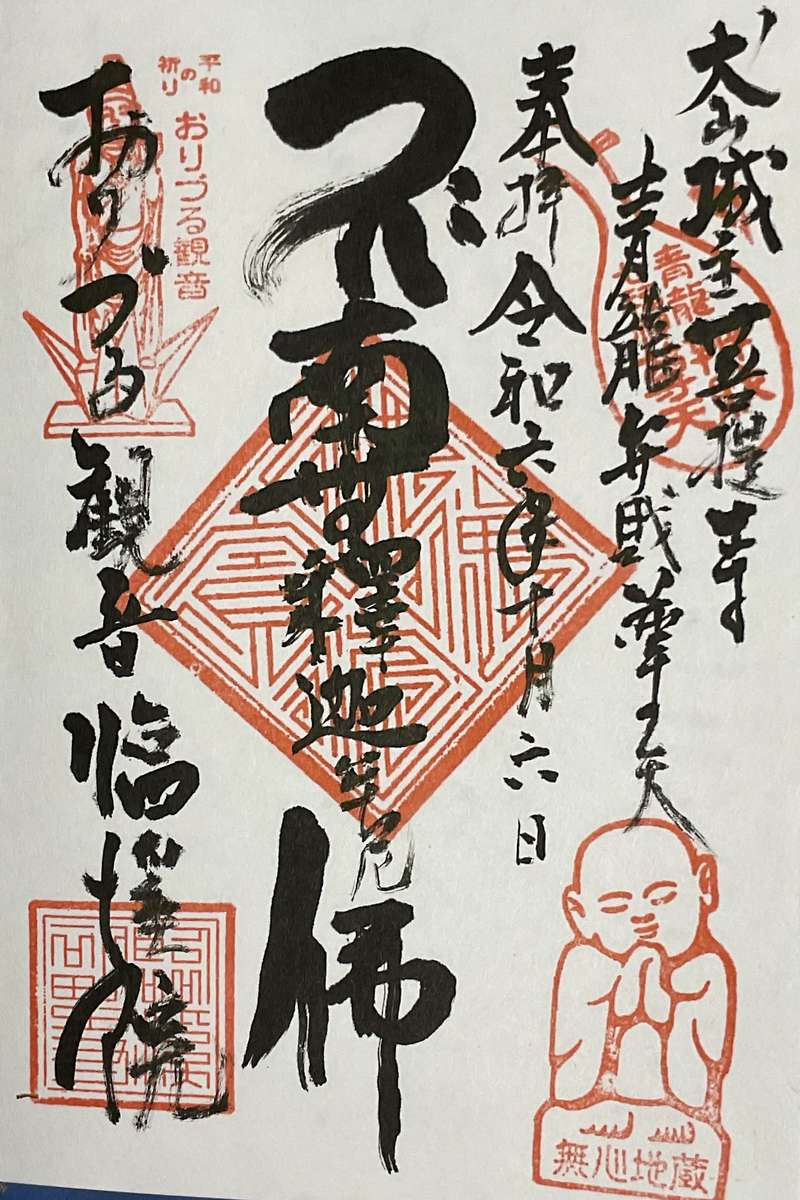 犬山城主菩提寺
青龍弁財尊天
奉拝 令和六年十月六日
南無釋迦牟尼佛
おりづる観音 臨渓院
平和の祈り
おりづる観音
青龍
無心地蔵